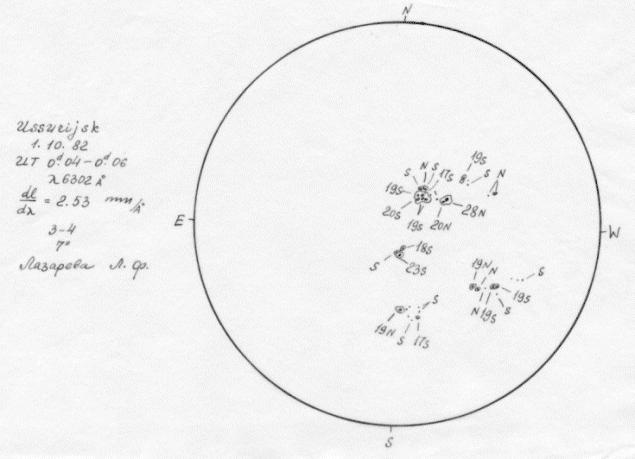 N
19S
S N S
S N
17S
19S
20S 19S 20N 28N
Ussurijsk
1. 10. 82
UT 0d.04 – 0d.06
λ 6302 Å
dl/dλ = 2.53 mm/Å
3-4
7"
Лазарева Л. Ф.
E
W
18S
S 23S
19N N S
19S
N 19S S
S
19N S 17S
S